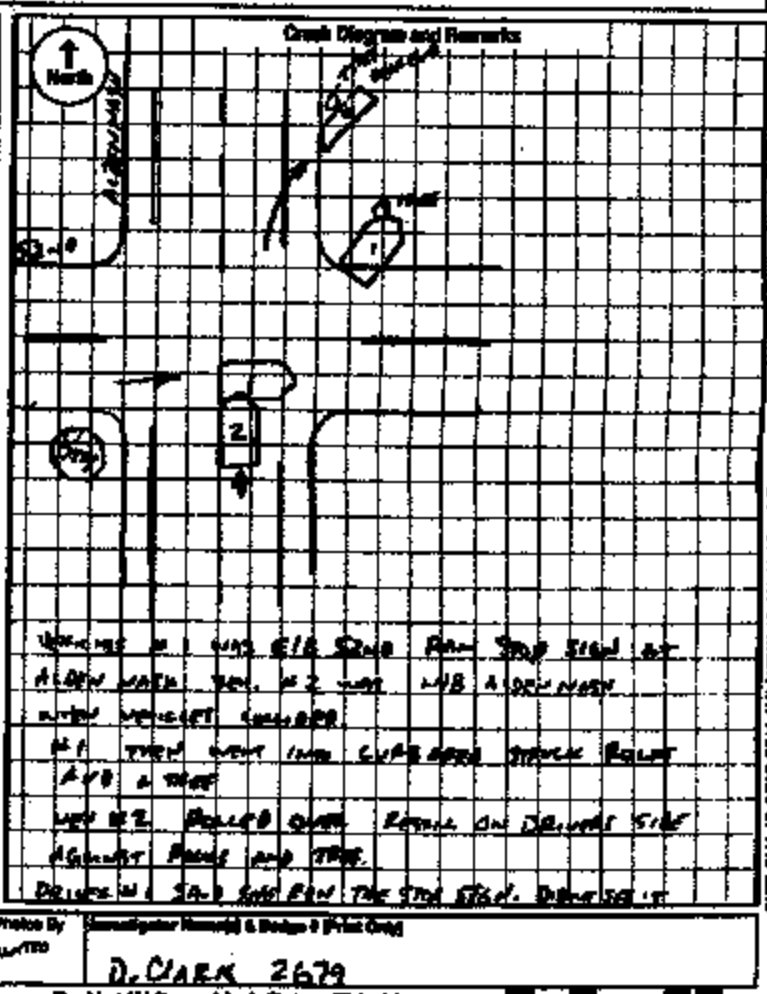 Crash Diagram and Remarks
North
ALDEN NASH
52ND
TREE
1
2
STOP
VEHICLE #1 WAS E/B 52ND RAN STOP SIGN AT
ALDEN NASH VEH. #2 WAS N/B ALDEN NASH
WHEN VEHICLES COLLIDED
#1 THEN WENT INTO STRUCK
AND A TREE
VEH #2 ROLLED OVER ON DRIVERS SIDE
AGAINST AND TREE.
DRIVER #1 SAID SHE RAN THE STOP SIGN. DIDNT SEE IT
Photos By
Investigator Name(s) & Badge # (Print Only)
D. CLARK 2679